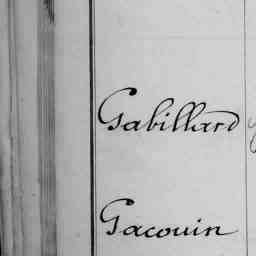 Gabillard
Gacouin